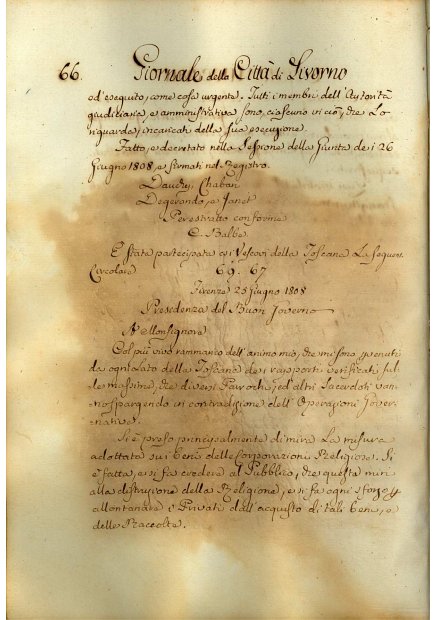 66. Giornale della Città di Livorno
ed eseguito, come cosa urgente. Tutti i membri dell'Autorità
giudiciaria, e amministrativa sono, ciascuno in ciò, che Lo
riguarda, incaricati della sua esecuzione.
Fatto, e decretato nella Sessione della Giunta de i 26
Giugno 1808, e firmati nel Registro.
Dauchy, Chaban
Degerando, e Janet
Per estratto conforme
C. Balbe
È stata partecipata ai Vescovi della Toscana La seguente
Circolare 69. 67
Firenze 25 Giugno 1808
Presidenza del Buon Governo
Monsignore
Col più vivo rammarico dell'animo mio, che mi sono pervenuti
da ogni lato della Toscana dei rapporti verificati sul-
le massime, che diversi Parrochi, ed altri Sacerdoti van-
no spargendo in contradizione dell'Operazioni Gover-
native.
Si è preso principalmente di mira La misura
adottata sui beni delle Corporazioni Religiose. Si
è fatta, e si fa credere al Pubblico, che questa miri
alla distruzione della Religione, e si fa ogni sforzo p
allontanare i Privati dall'acquisto di tali beni, e
delle Raccolte.